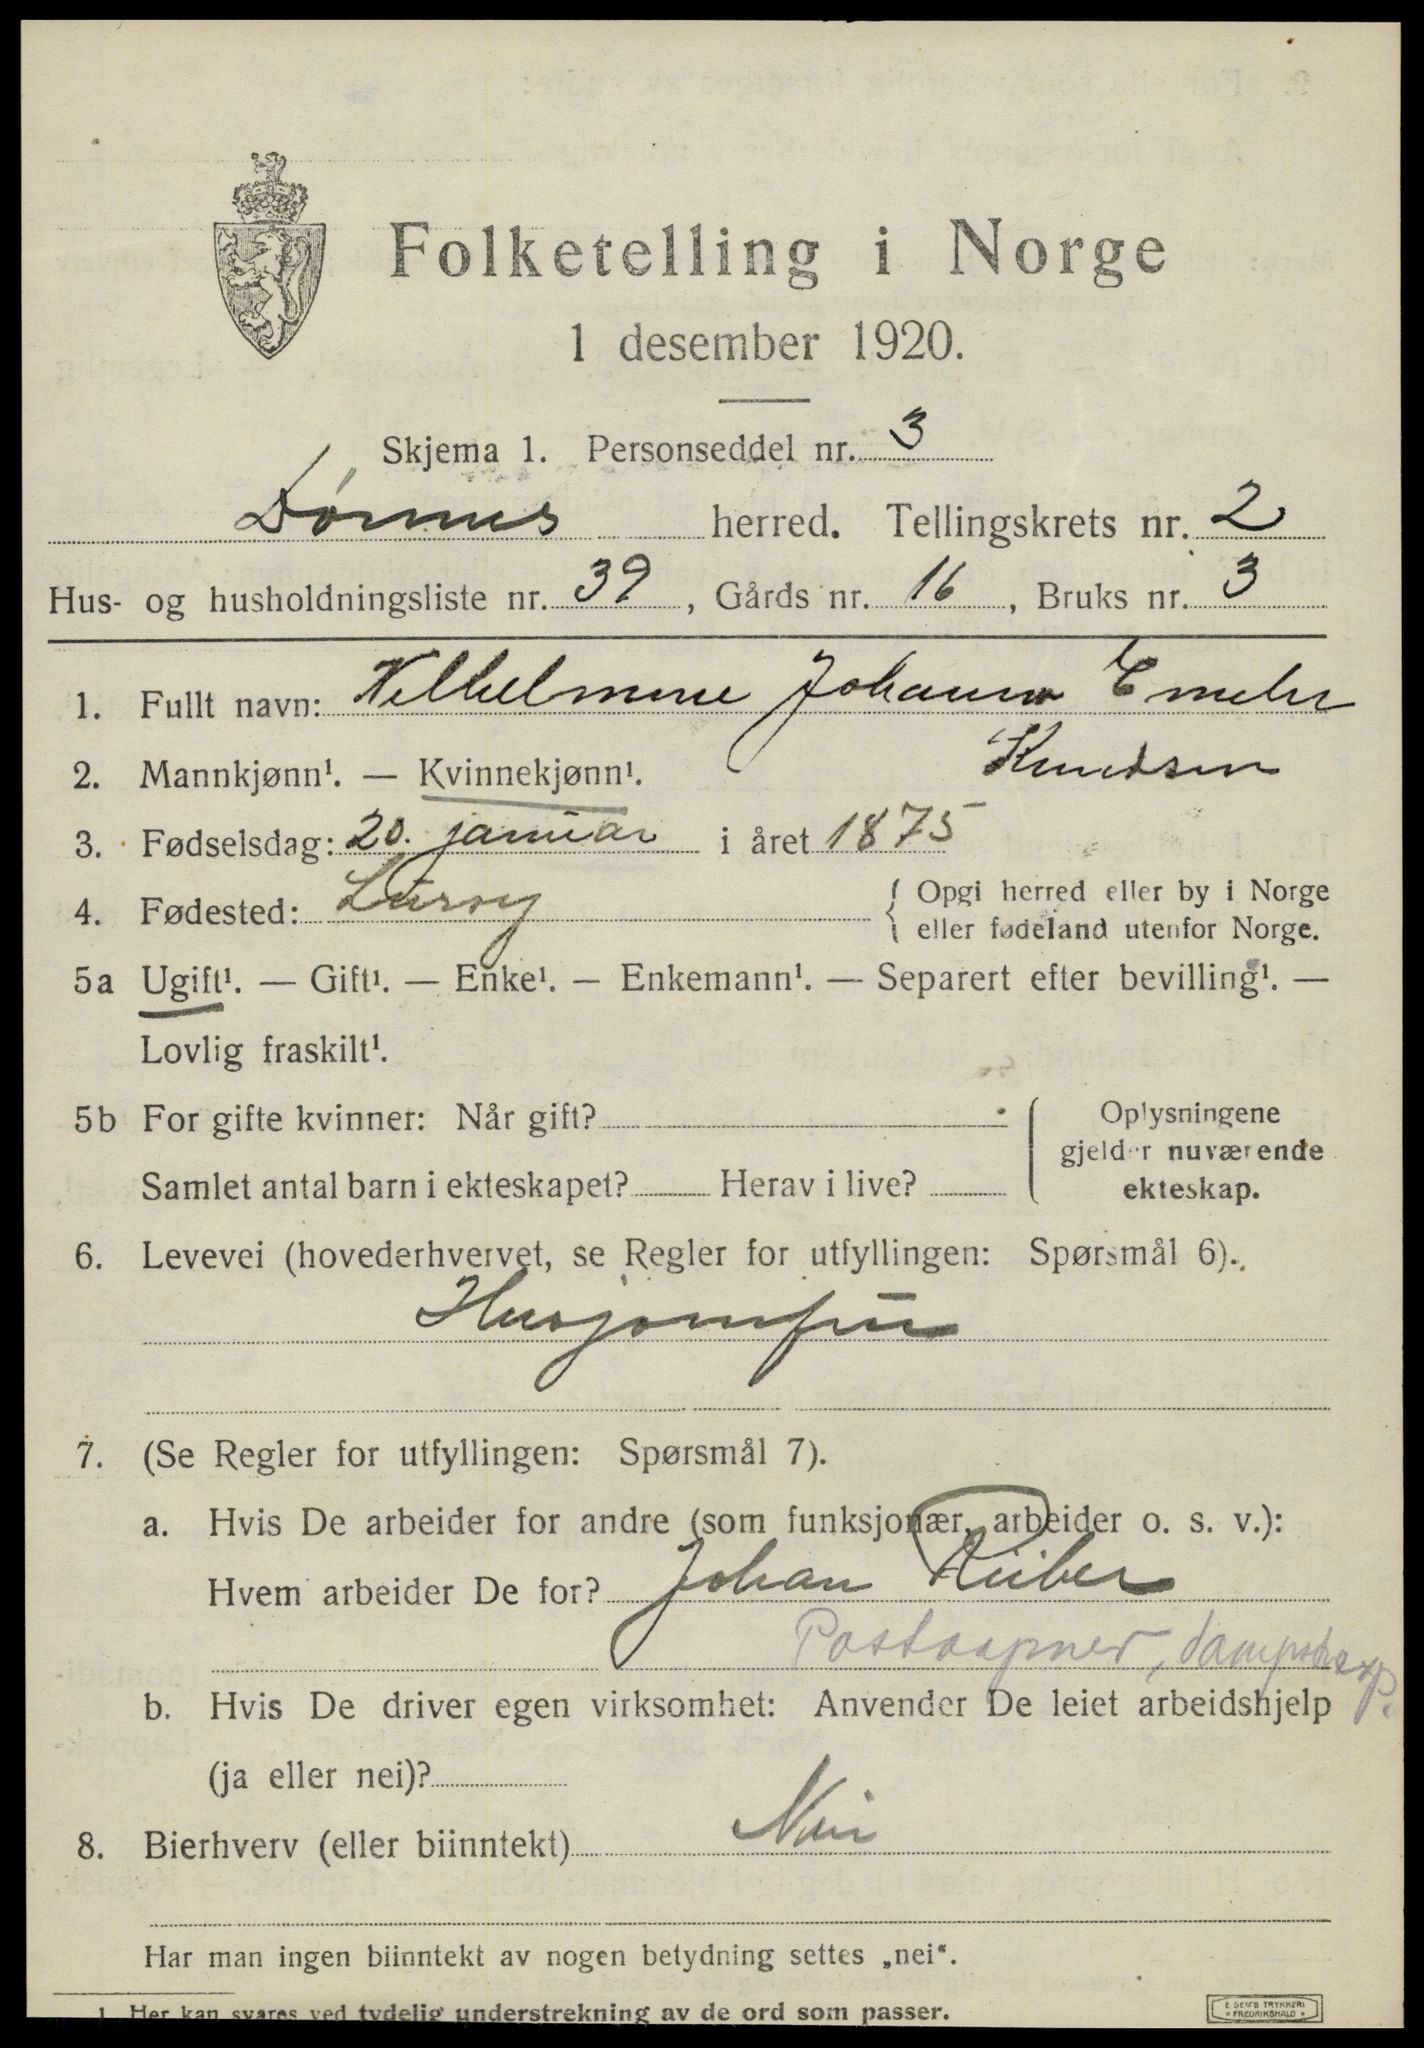 Folketelling i Norge
1 desember 1920.
Skjema 1. Personseddel nr. 3
Dønnes herred. Tellingskrets nr. 2
Hus- og husholdningsliste nr. 39, Gårds nr. 16, Bruks nr. 3
1. Fullt navn: Vilhelmine Johanna Emelie
Knudsen
2. Mannkjønn¹. — Kvinnekjønn¹.
3. Fødselsdag: 20. januar i året 1875
4. Fødested: Lurøy { Opgi herred eller by i Norge
eller fødeland utenfor Norge.
5a Ugift¹. — Gift¹. — Enke¹. — Enkemann¹. — Separert efter bevilling¹. —
Lovlig fraskilt¹.
5b For gifte kvinner: Når gift? { Oplysningene
gjelder nuværende
Samlet antal barn i ekteskapet? Herav i live? ekteskap.
6. Levevei (hovederhvervet, se Regler for utfyllingen: Spørsmål 6).
Husjomfru
7. (Se Regler for utfyllingen: Spørsmål 7).
a. Hvis De arbeider for andre (som funksjonær, arbeider o. s. v.):
Hvem arbeider De for? Johan
Postaapner, dampskexp.
b. Hvis De driver egen virksomhet: Anvender De leiet arbeidshjelp
(ja eller nei)?
8. Bierhverv (eller biinntekt) Nei
Har man ingen biinntekt av nogen betydning settes „nei“.
1 Her kan svares ved tydelig understrekning av de ord som passer.
E. SEM'S TRYKKERI
FREDRIKSHALD